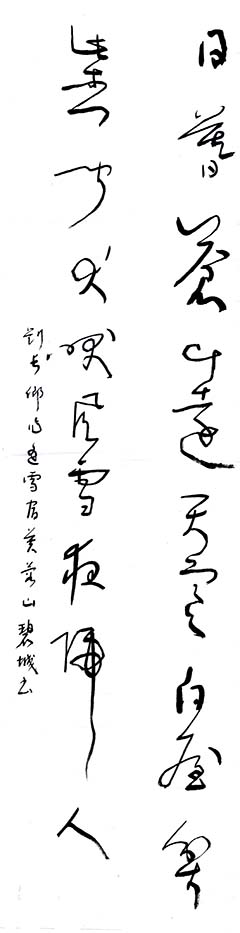 日暮蒼山遠天寒白屋貧
柴門聞犬吠風雪夜歸人
劉長卿詩逢雪宿芙蓉山碧城書